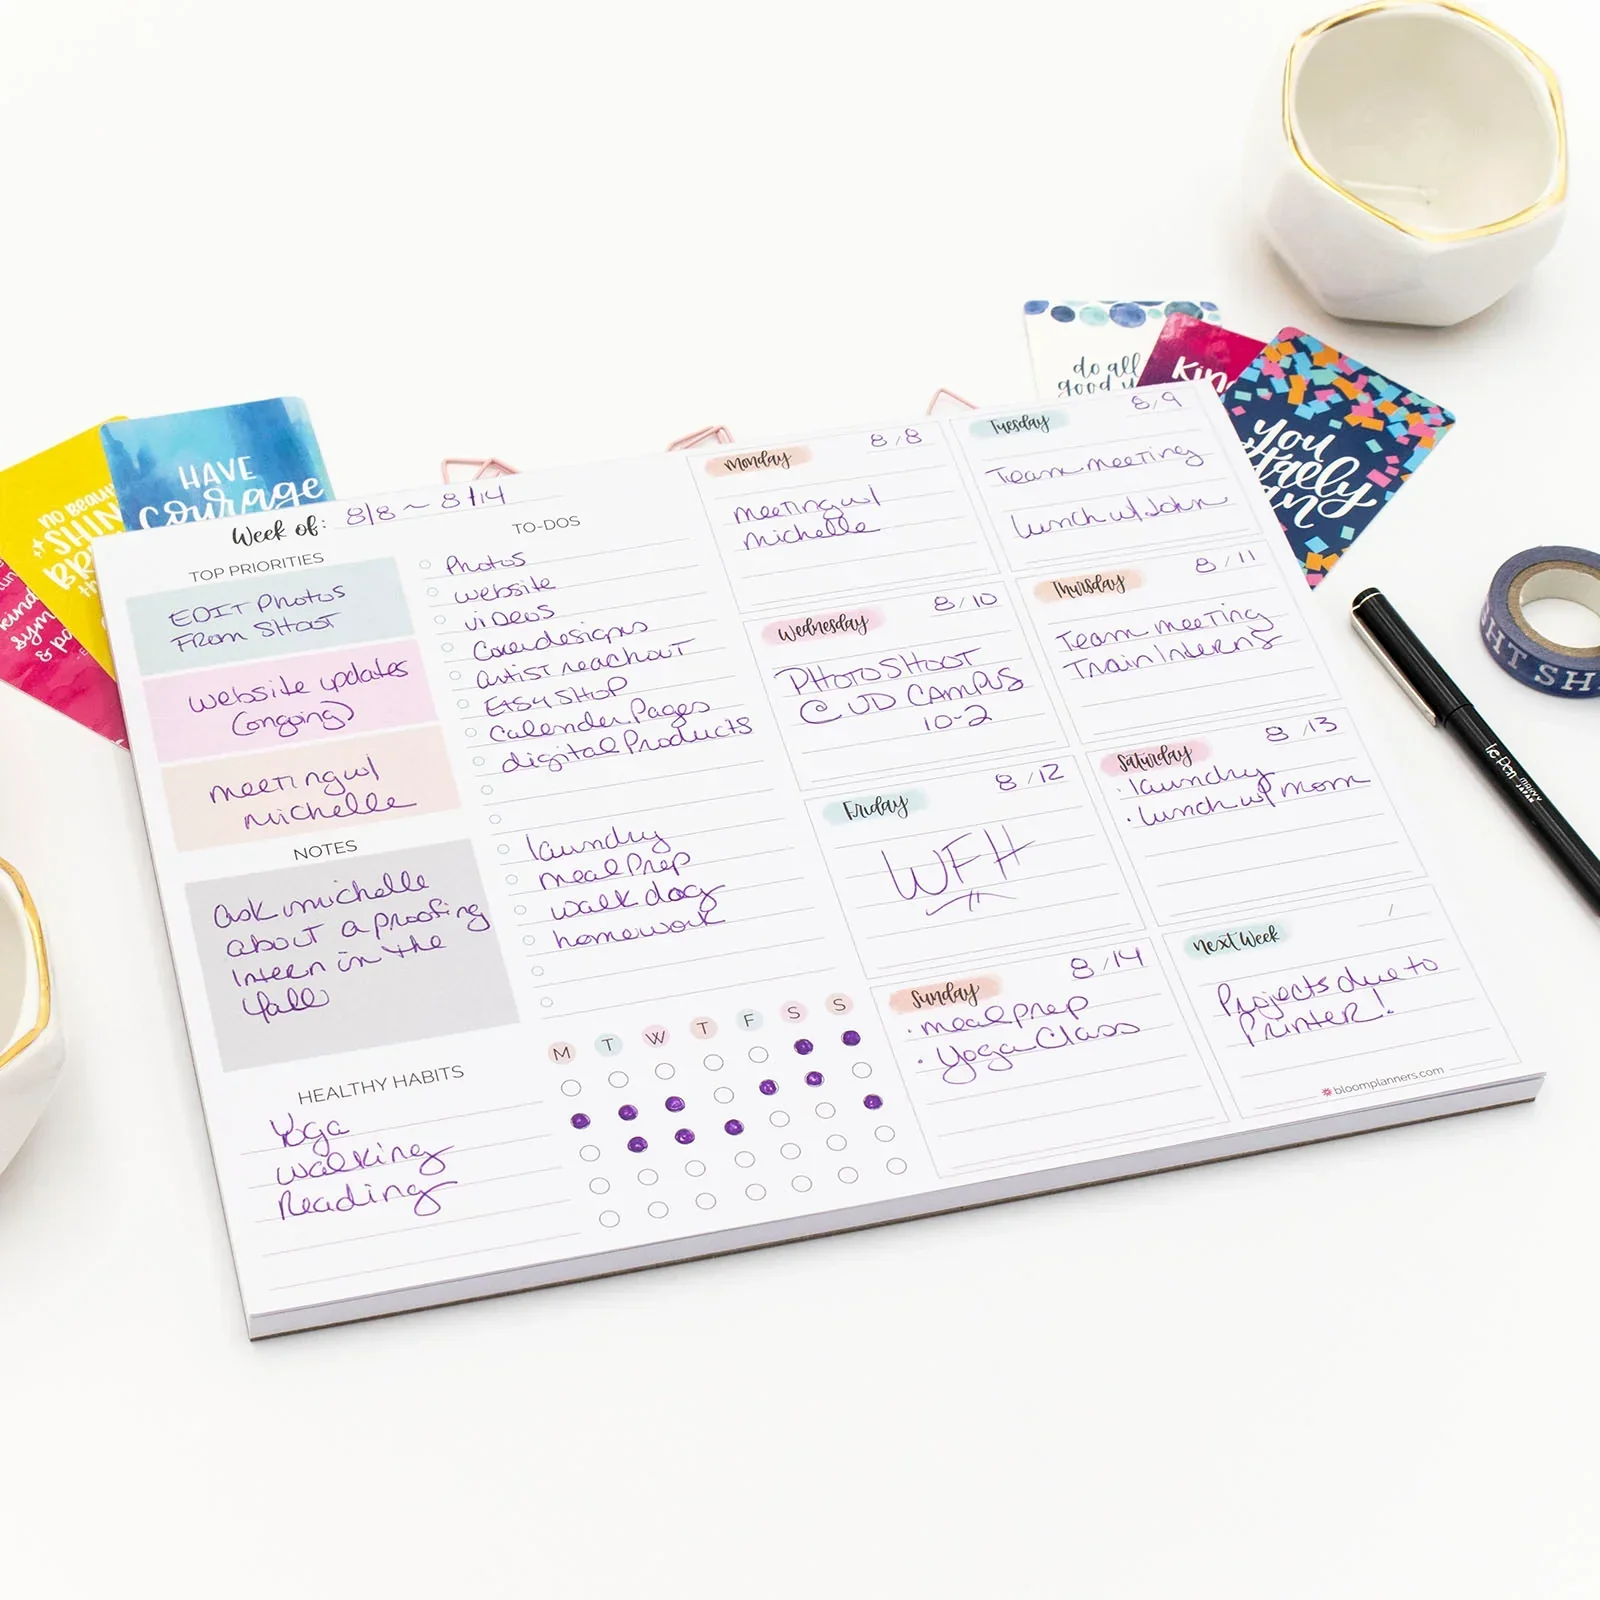 NO BEAUTY
SHIN
BR
th
HAVE
courage
kind
sym
& po
do all
good
KIN
you
totally
Week of: 8/8 ~ 8/14
TOP PRIORITIES
EDIT Photos
From SHOOT
website updates
(ongoing)
meeting w/
michelle
NOTES
ask michelle
about a proofing
Intern in the
fall
HEALTHY HABITS
Yoga
walking
Reading
TO-DOS
Photos
website
videos
Cover designs
artist reachout
ETSY SHOP
Calender Pages
digital Products
laundry
meal Prep
walk dog
homework
M T W T F S S
Monday 8/8
meeting w/
michelle
Tuesday 8/9
Team meeting
lunch w/ John
Wednesday 8/10
PHOTOSHOOT
@ UD CAMPUS
10-2
Thursday 8/11
Team meeting
Train Interns
Friday 8/12
WFH
Saturday 8/13
· laundry
· lunch w/ mom
Sunday 8/14
· meal prep
· Yoga Class
Next Week /
Projects due to
Printer!
bloomplanners.com
Le Pen MARVY
JAPAN
SHIT SH